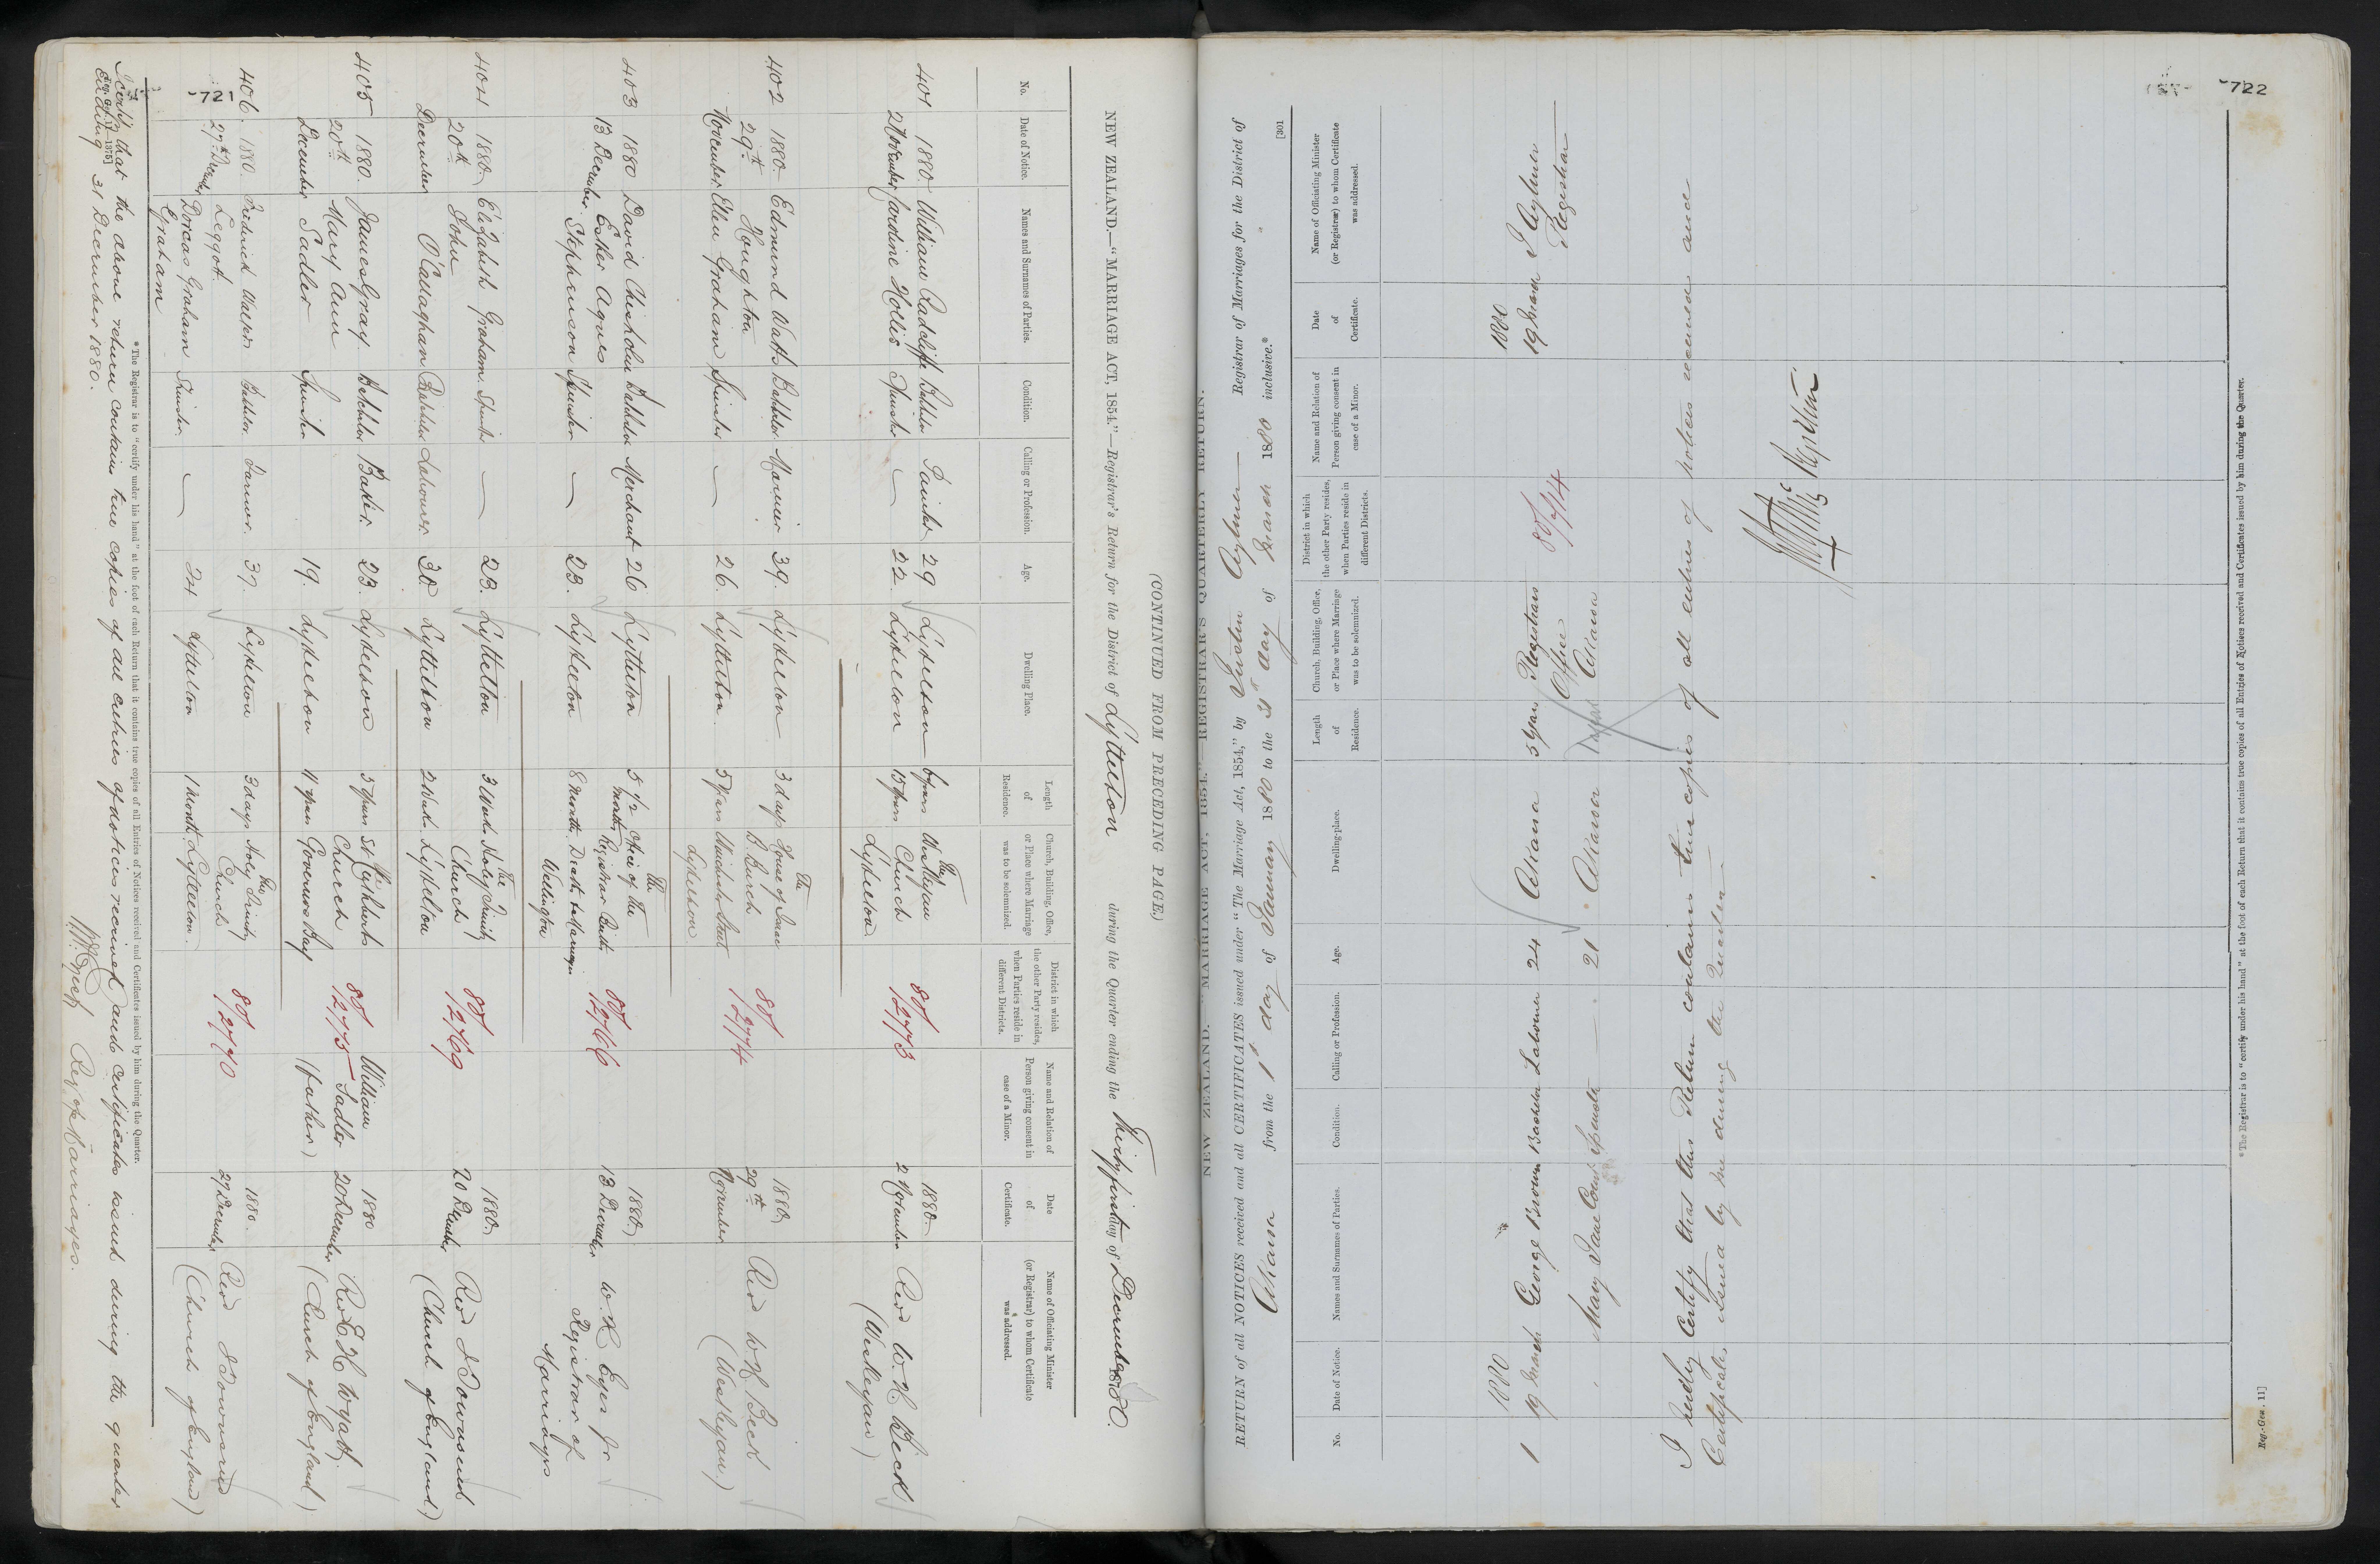 (CONTINUED FROM PRECEDING PAGE)
NEW ZEALAND.—"MARRIAGE ACT, 1854."—Registrar's Return for the District of Lyttelton during the Quarter ending the Thirty first day of December 1880.
No.
Date of Notice.
Names and Surnames of Parties.
Condition.
Calling or Profession.
Age.
Dwelling Place.
Length of Residence.
Church, Building, Office, or Place where Marriage was to be solemnized.
District in which the other Party resides, when Parties reside in different Districts.
Name and Relation of Person giving consent in case of a Minor.
Date of Certificate.
Name of Officiating Minister (or Registrar) to whom Certificate was addressed.
401 1880. William Radcliffe Bachelor Painter 29 Lyttelton 6 years The Wesleyan 80/2773 1880. Revd W. H. Beck
2 November Jardine Hollis Spinster — 22 Lyttelton 15 years Church Lyttelton 2 November (Wesleyan)
402 1880. Edmund Watts Bachelor Mariner 39. Lyttelton 3 days The House of Isaac 80/2774 1880 Revd W. H. Beck
29th Houghton B. Burch 29th
November Ellen Graham Spinster — 26. Lyttelton 5 years Winchester Street Lyttelton November (Wesleyan.)
403 1880 David Chisholm Bachelor Merchant 26 Lyttelton 5 1/2 months The Office of the 80/2766 1880 W. H. Eyes Jr
13 December Esther Agnes Registrar Births 13 December Registrar of
Stephenson Spinster — 23. Lyttelton 8 months Deaths & Marriages Wellington Marriages
404 1880 Elizabeth Graham Spinster — 23. Lyttelton 3 Weeks The Holy Trinity 80/2769 1880 Revd J Townsend
20th John Church 20 December
December O'Callaghan Bachelor Labourer 30 Lyttelton 2 Weeks Lyttelton (Church of England)
405 1880. James Gray Batchelor Baker 23. Lyttelton 5 years St Cuthberts 80/2775 William 1880 Revd E H Wyatt
20th Mary Ann Church Sadler 20 December
December Sadler Spinster 19. Lyttelton 11 years Governors Bay (father) (Church of England)
406. 1880. Frederick Walters Bachelor. Farmer. 37. Lyttelton 3 days The Holy Trinity 80/2770 1880. Revd J Townsend
27th December Leggot Church 27 December
Dorcas Graham Spinster. — 24 Lyttelton 1 month Lyttelton. (Church of England)
Graham
721
*The Registrar is to "certify under his hand" at the foot of each Return that it contains true copies of all Entries of Notices received and Certificates issued by him during the Quarter.
I certify that the above return contains true copies of all entries of notices received and certificates issued during the quarter
ending 31 December 1880.
Reg of Marriages.
722
NEW ZEALAND. "MARRIAGE ACT, 1854." REGISTRAR'S QUARTERLY RETURN.
RETURN of all NOTICES received and all CERTIFICATES issued under "The Marriage Act, 1854," by Justin Aylmer Registrar of Marriages for the District of
Akaroa from the 1st day of January 1880 to the 31st day of March 1880 inclusive.*
[301
No.
Date of Notice.
Names and Surnames of Parties.
Condition.
Calling or Profession.
Age.
Dwelling-place.
Length of Residence.
Church, Building, Office, or Place where Marriage was to be solemnized.
District in which the other Party resides, when Parties reside in different Districts.
Name and Relation of Person giving consent in case of a Minor.
Date of Certificate.
Name of Officiating Minister (or Registrar) to whom Certificate was addressed.
1880 1880
1 19 March George Brown Bachelor Labourer 24 Akaroa 5 years Registrars 80/714 19 March J Aylmer
Office Registrar
Mary Jane Spinster — 21 Akaroa Akaroa
I hereby certify that this Return contains true copies of all entries of notices received and
Certificates issued by me during the Quarter
Registrar
*The Registrar is to "certify under his hand" at the foot of each Return that it contains true copies of all Entries of Notices received and Certificates issued by him during the Quarter.
Reg.-Gen. 11]